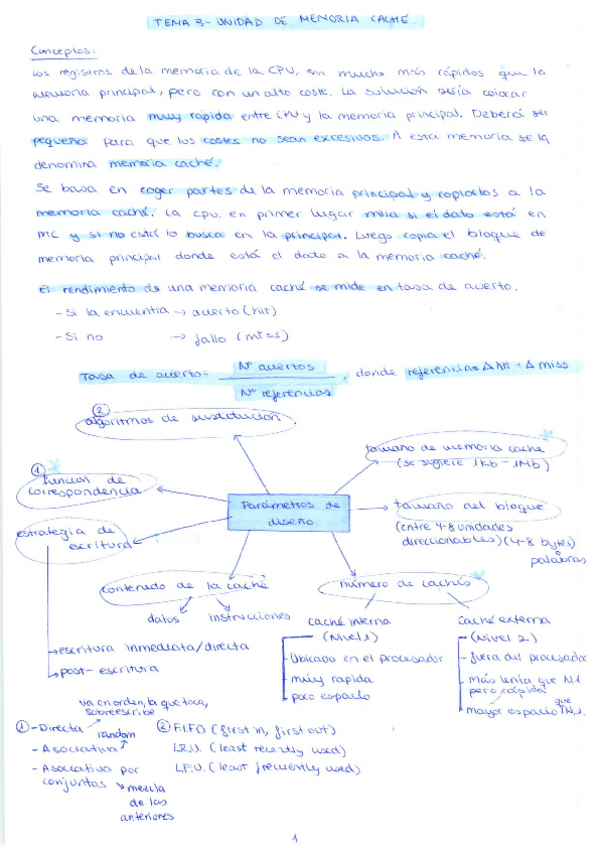 TEMA 3- UNIDAD DE MEMORIA CACHÉ.
Conceptos:
Los registros de la memoria de la CPU, son mucho más rápidos que la
memoria principal, pero con un alto coste. La solución sería colocar
una memoria muy rápida entre CPU y la memoria principal. Deberá ser
pequeña para que los costes no sean excesivos. A esta memoria se la
denomina memoria caché.
Se basa en coger partes de la memoria principal y copiarlos a la
memoria caché. La cpu, en primer lugar mira si el dato está en
MC y si no está lo busca en la principal. Luego copia el bloque de
memoria principal donde está el dato a la memoria caché.
El rendimiento de una memoria caché se mide en tasa de acierto.
- Si la encuentra → acierto (hit)
- Si no → fallo (miss)
Tasa de acierto = Nº aciertos / Nº referencias, donde referencias Δ hit + Δ miss
②
algoritmos de sustitución.
tamaño de memoria caché
(se sugiere 1Kb - 1Mb)
①
función de
correspondencia
Parámetros de
diseño
tamaño del bloque
(entre 4-8 unidades
direccionables) (4-8 bytes)
palabras
estrategia de
escritura
contenido de la caché
número de cachés
datos instrucciones
→ escritura inmediata/directa
→ post-escritura
caché interna
(Nivel 1)
- Ubicado en el procesador
- muy rapida
- poco espacio
caché externa
(Nivel 2)
- fuera del procesador
- más lenta que N1
pero rápida
- mayor espacio que N1.
va en orden, la que toca,
sobreescribe
① - Directa
random
- Asociativa
- Asociativa por
conjuntos
mezcla
de las
anteriores
② F.I.F.O (first in, first out)
L.R.U. (least recently used)
L.F.U. (least frecuently used)
1